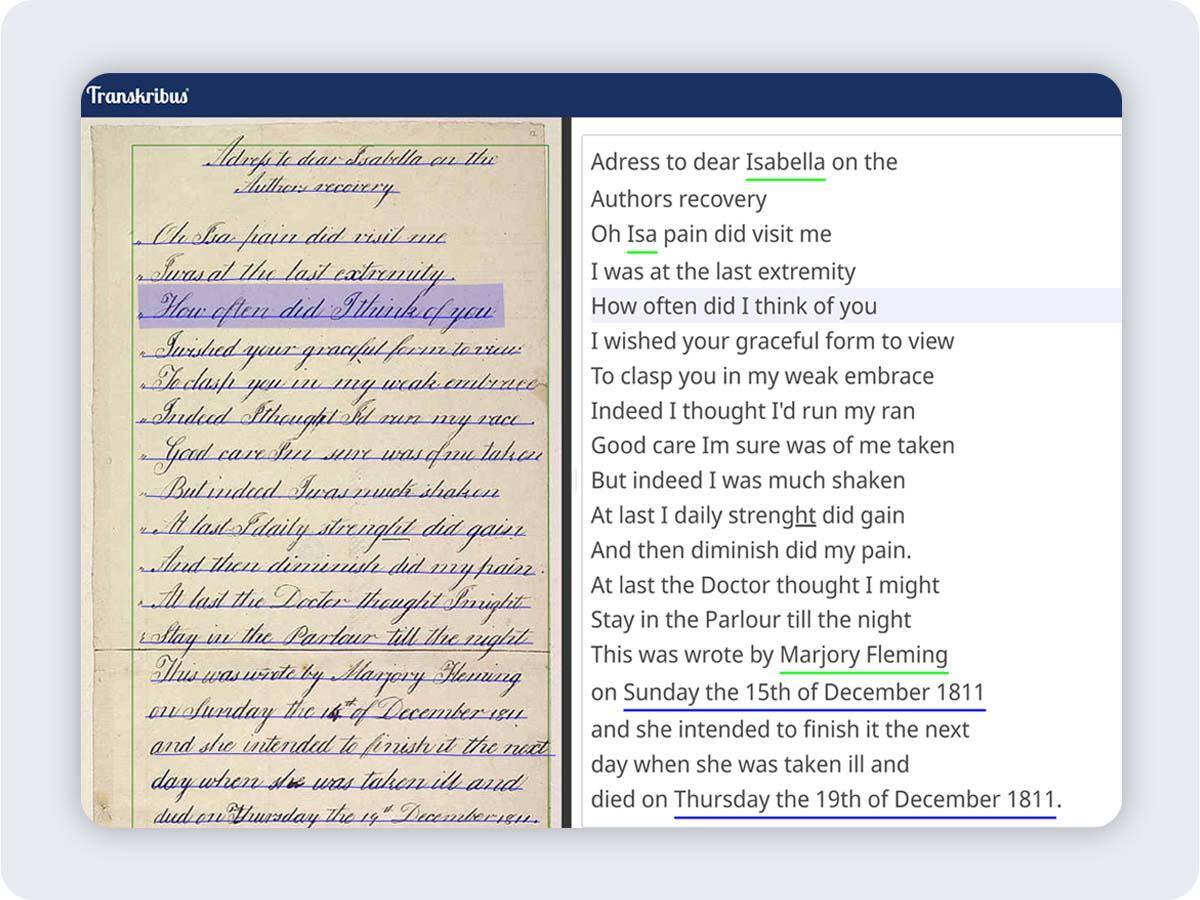 Transkribus
Adress to dear Isabella on the
Authors recovery
„ Oh Isa pain did visit me
„ I was at the last extremity.
„ How often did I think of you
„ I wished your graceful form to view
„ To clasp you in my weak embrace
„ Indeed I thought I'd run my race.
„ Good care I'm sure was of me taken
„ But indeed I was much shaken
„ At last I daily strenght did gain
„ And then diminish did my pain.
„ At last the Doctor thought I might
„ Stay in the Parlour till the night
This was wrote by Marjory Fleming
on Sunday the 15th of December 1811
and she intended to finish it the next
day when she was taken ill and
died on Thursday the 19th December 1811.
Adress to dear Isabella on the
Authors recovery
Oh Isa pain did visit me
I was at the last extremity
How often did I think of you
I wished your graceful form to view
To clasp you in my weak embrace
Indeed I thought I'd run my ran
Good care Im sure was of me taken
But indeed I was much shaken
At last I daily strenght did gain
And then diminish did my pain.
At last the Doctor thought I might
Stay in the Parlour till the night
This was wrote by Marjory Fleming
on Sunday the 15th of December 1811
and she intended to finish it the next
day when she was taken ill and
died on Thursday the 19th of December 1811.